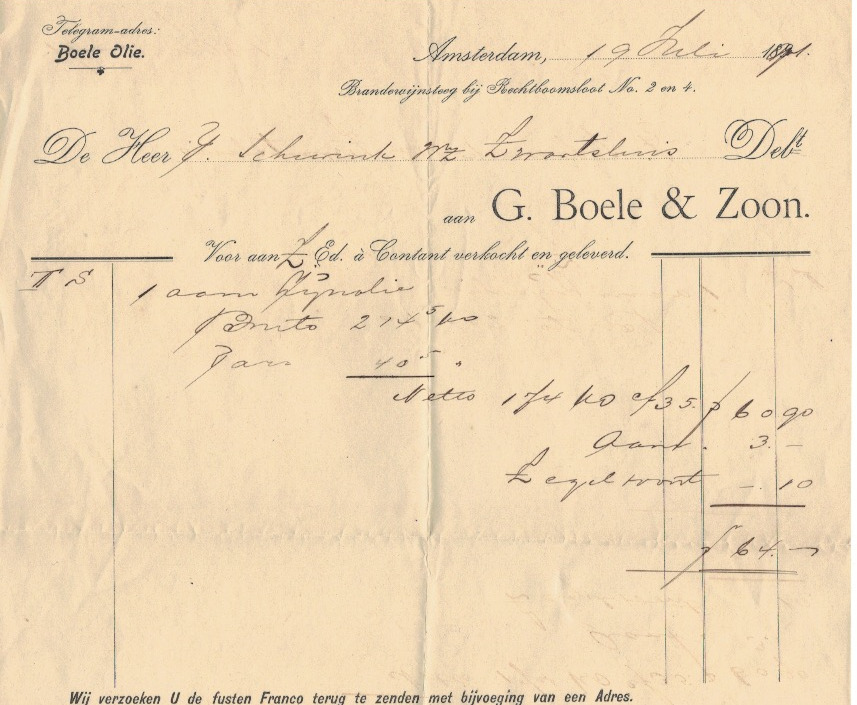 Telegram-adres:
Boele Olie.
Amsterdam, 19 Juli 1891.
Brandewijnsteeg bij Rechtboomsloot No. 2 en 4.
De Heer Schurink Wz Zwartsluis Debt
aan G. Boele & Zoon.
Voor aan Z Ed. à Contant verkocht en geleverd.
T S
1 aam Lijnolie
Bruto 214⁵ Ko
Tarra 40⁵ "
Netto 174 Ko à f 35. f 60 90
3.—
Zegel —. 10
f 64.—
Wij verzoeken U de fusten Franco terug te zenden met bijvoeging van een Adres.